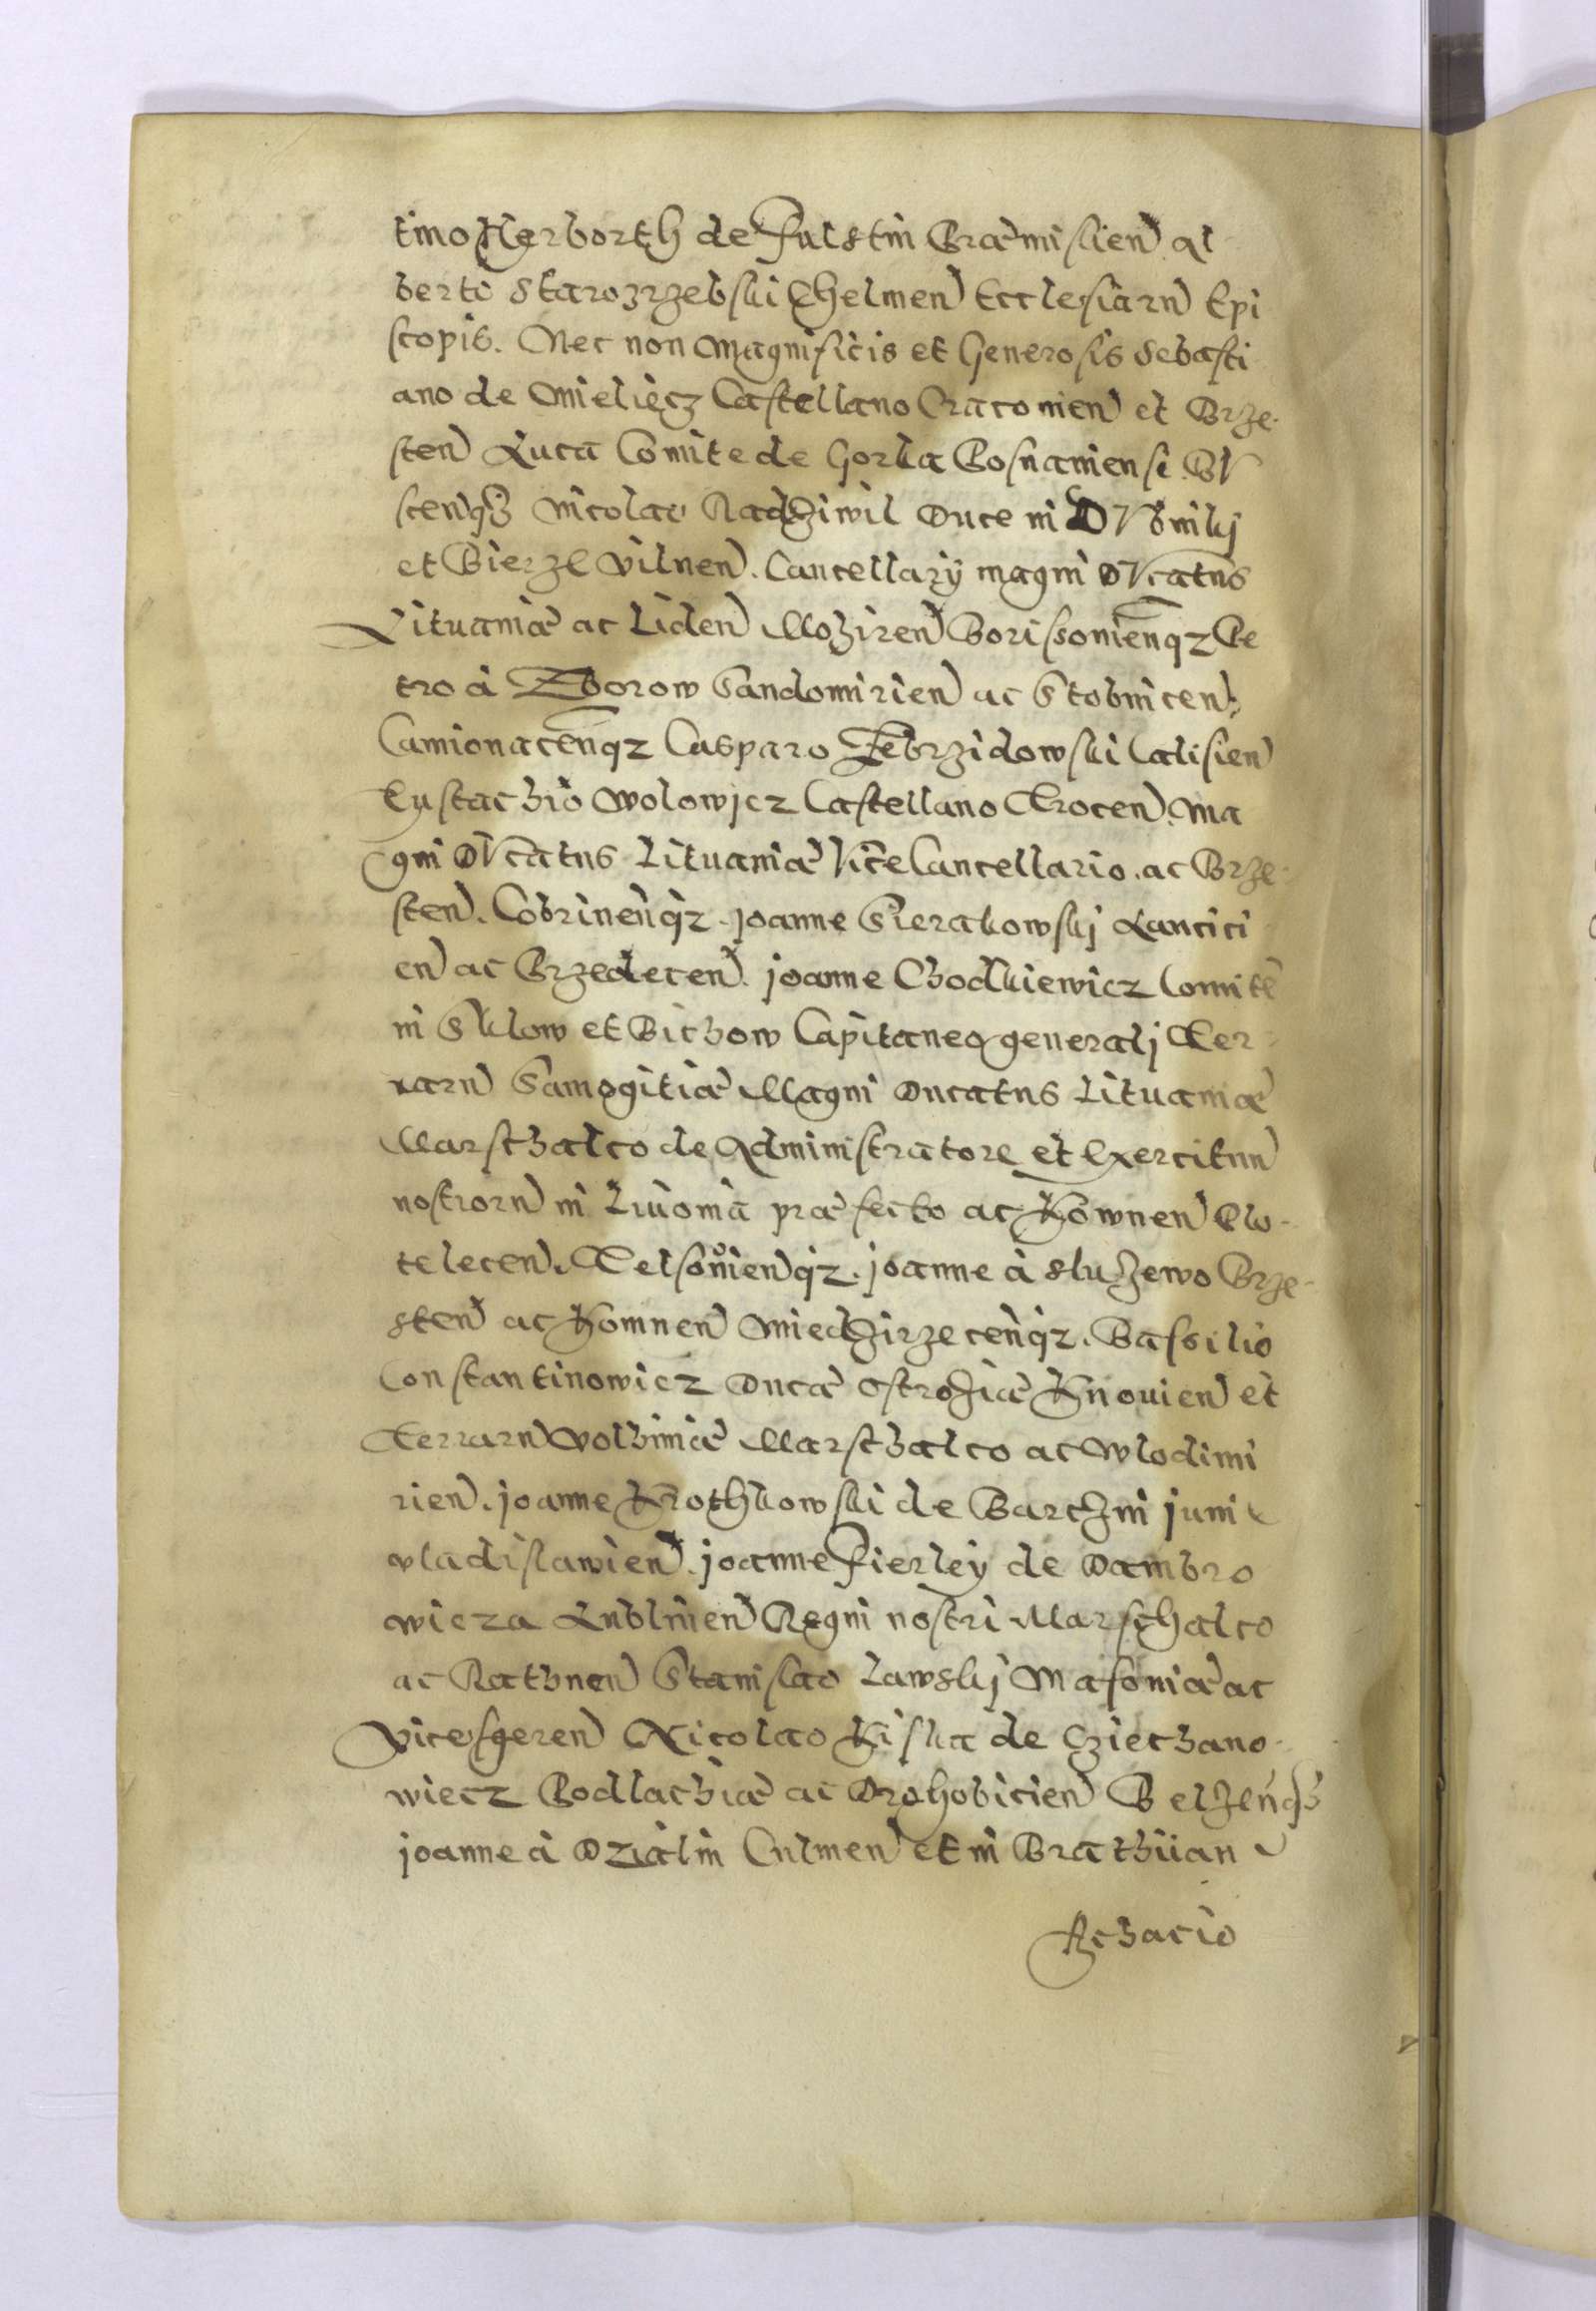 tino Herborth de Fulstin Præmislien. Al
berto Starozrzebski Chelmen Ecclesiarū Epi
scopis. Nec non Magnificis et Generosis Sebasti
ano de Mieliecz Castellano Cracovien et Brze-
sten Luca Comite de Gorka Posnaniensi. BV
scenqz Nicolao Radziwil Duce in DVbinkj
et Bierze Vilnen. Cancellarÿ magni DVcatus
Lituaniæ ac Liden Moziren Borissovienqz Pe
tro à Zborow Sandomirien ac Stobnicen
Camionacenqz Casparo Zebrzidowski Calisien
Eustachio Wolowicz Castellano Trocen. Ma
gni DVcatus Lituaniæ ViceCancellario. ac Brze-
sten. Cobrinenqz. joanne Sierakowskj Lancici
en ac Przedecen. joanne Chodkiewicz Comite
in Sklow et Bichow Capitaneo generalj Ter-
rarū Samogitiæ Magni Ducatus Lituaniæ
Marschalco de Administratore et Exercituū
nostrorū in Livonia præfecto ac Kownen Plo-
telecen. Telsovienqz. joanne à Sluzewo Brze-
sten ac Komnen Miedzirzecenqz. Bassilio
Constantinowicz Ducæ Ostroziæ Kiiovien et
Terrarū Volhiniæ Marschalco ac Wlodimi
rien. joanne Krothkowski de Barczin juni
vladislawien. joanne Fierleÿ de Dambro
wicza Lublinen Regni nostri Marschalco
ac Rathnen Stanislao Lawskj Masoviæ ac
Vicesgeren Nicolao Kiska de Cziechano-
wiecz Podlachiæ ac Drohobicien Belzenqz
joanne à Dzialin Culmen et in Brathiian
Achacio